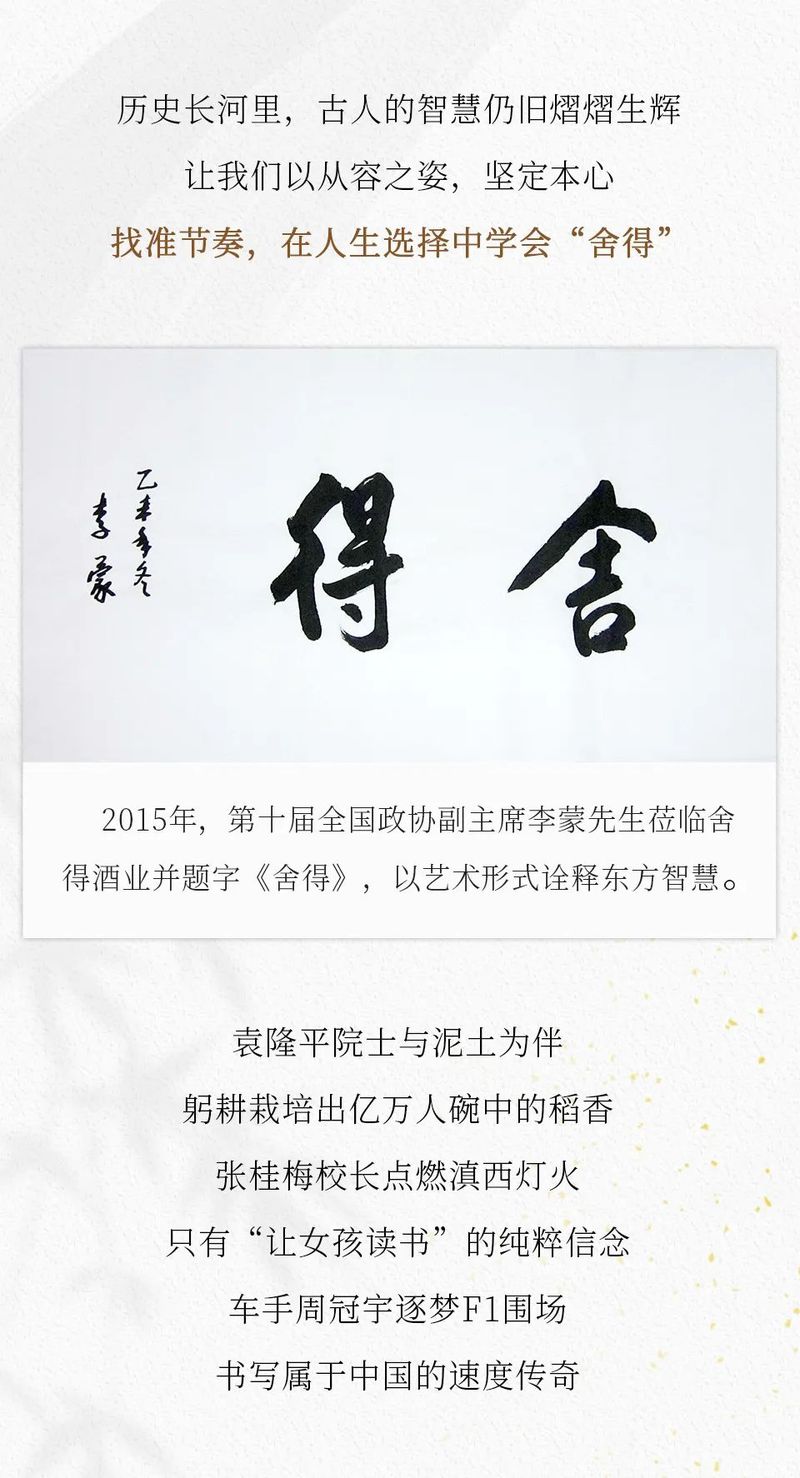 历史长河里，古人的智慧仍旧熠熠生辉
让我们以从容之姿，坚定本心
找准节奏，在人生选择中学会“舍得”
舍得
乙未年冬
李蒙
2015年，第十届全国政协副主席李蒙先生莅临舍
得酒业并题字《舍得》，以艺术形式诠释东方智慧。
袁隆平院士与泥土为伴
躬耕栽培出亿万人碗中的稻香
张桂梅校长点燃滇西灯火
只有“让女孩读书”的纯粹信念
车手周冠宇逐梦F1围场
书写属于中国的速度传奇